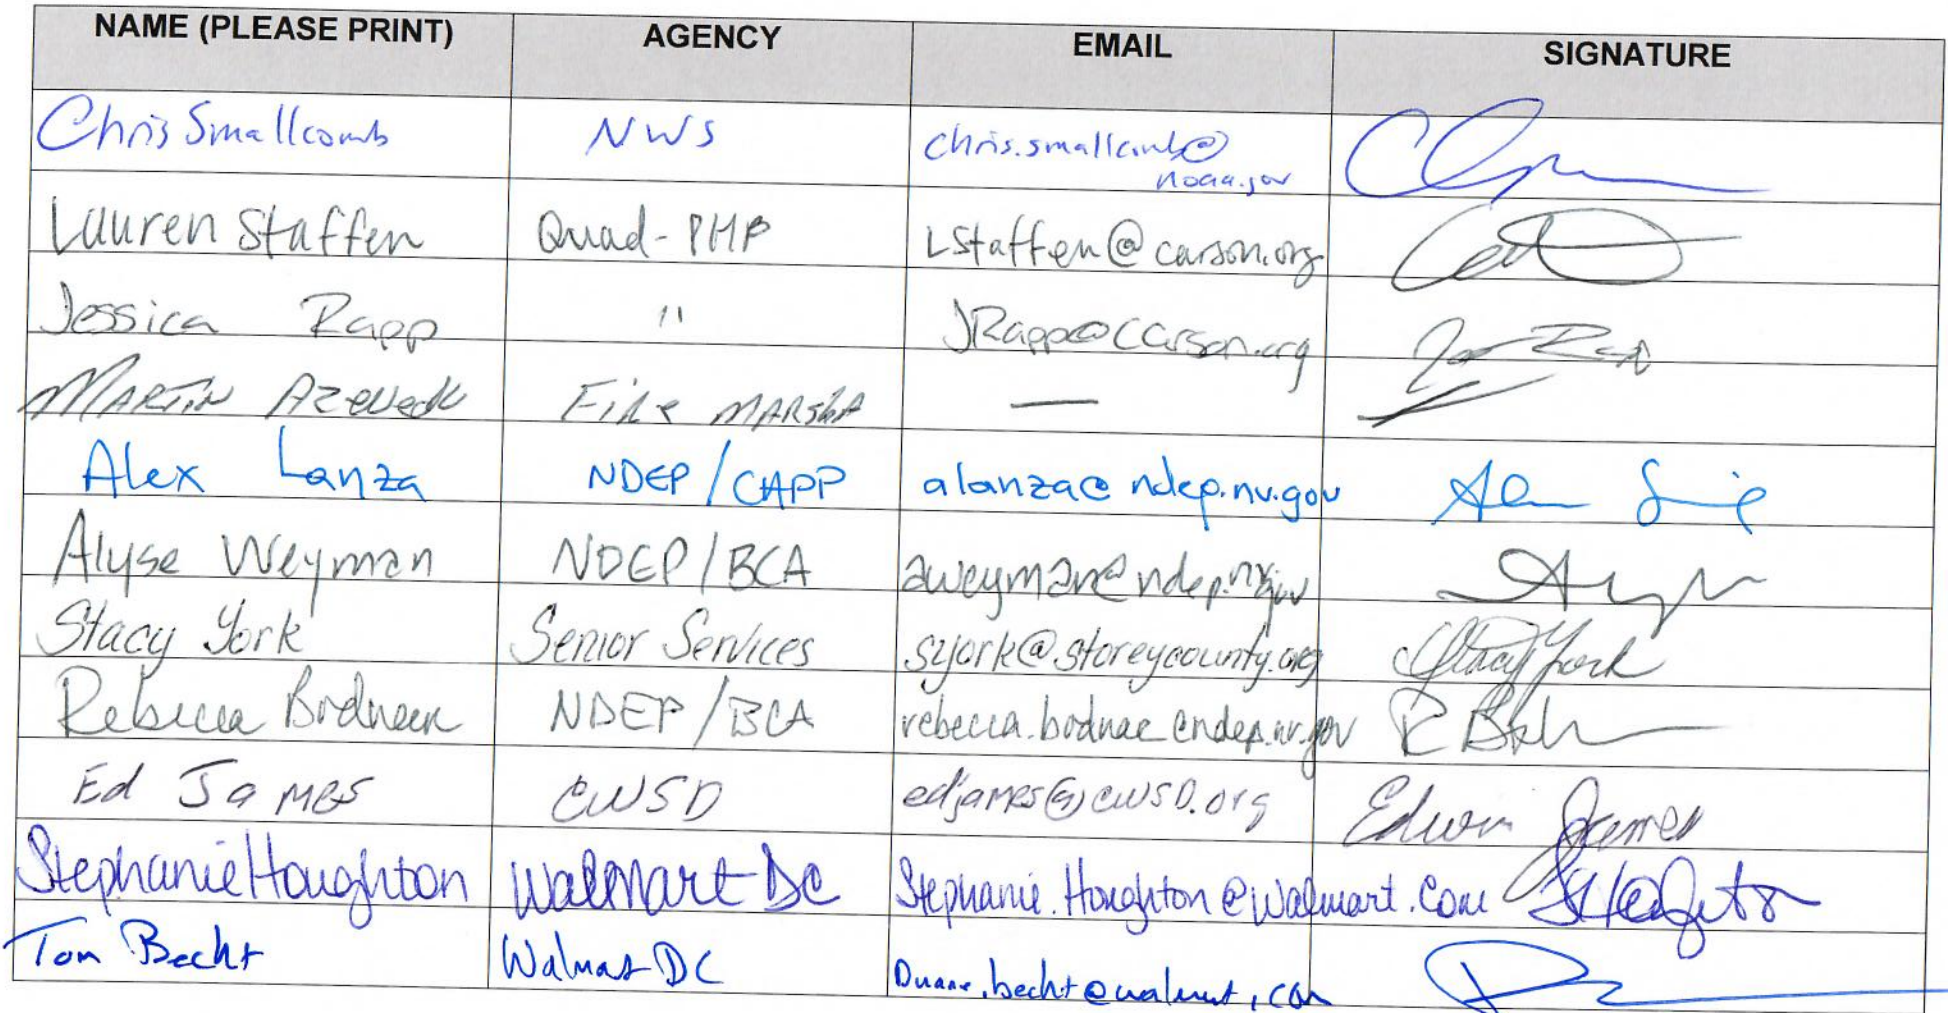 NAME (PLEASE PRINT) AGENCY EMAIL SIGNATURE
Chris Smallcomb NWS chris.smallcomb@
noaa.gov
Lauren Staffen Quad-PHP LStaffen@carson.org
Jessica Rapp " JRapp@carson.org
MARTIN AZEVEDO Fire MARSHA —
Alex Lanza NDEP/CAPP alanza@ndep.nv.gov
Alyse Weyman NDEP/BCA aweyman@ndep.nv.gov
Stacy York Senior Services syork@storeycounty.org Stacy York
Rebecca Bodnar NDEP/BCA rebecca.bodnar@ndep.nv.gov
Ed James CWSD edjames@cwsd.org Edwin James
Stephanie Houghton Walmart DC Stephanie.Houghton@Walmart.Com
Tom Becht Walmart DC Duane.becht@walmart.com